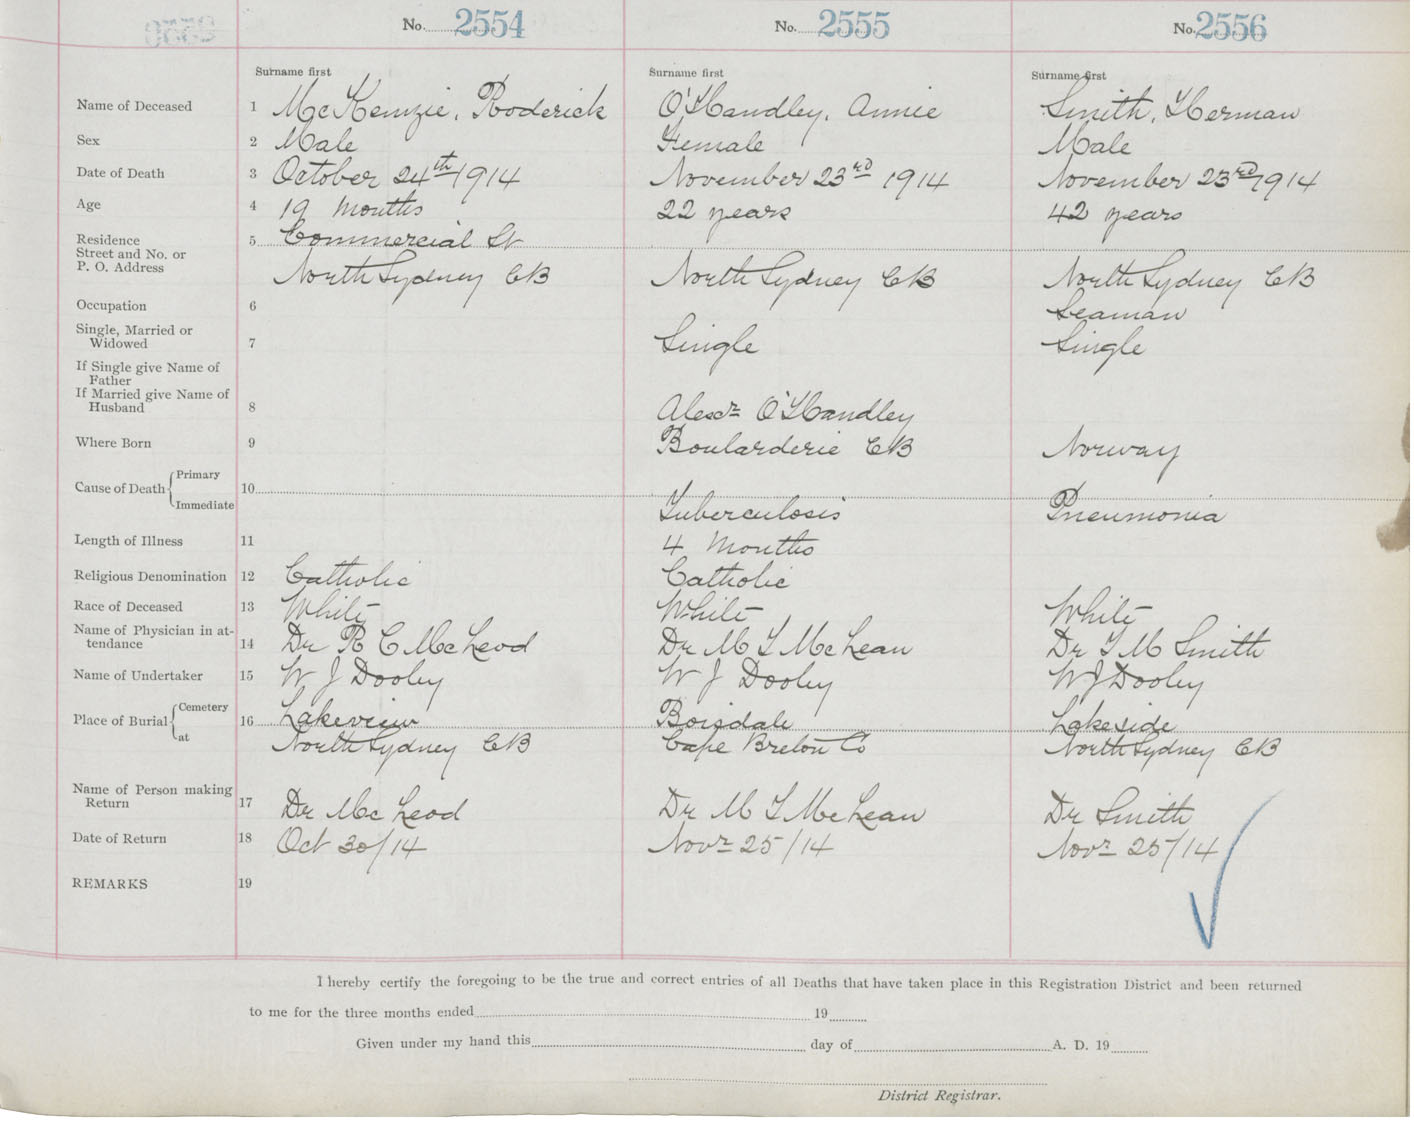 No. 2554 No. 2555 No. 2556
Surname first Surname first Surname first
Name of Deceased 1 McKenzie, Roderick O'Handley, Annie Smith, Herman
Sex 2 Male Female Male
Date of Death 3 October 24th 1914 November 23rd 1914 November 23rd 1914
Age 4 19 Months 22 years 42 years
Residence 5 Commercial St
Street and No. or
P. O. Address North Sydney CB North Sydney CB North Sydney CB
Occupation 6 Seaman
Single, Married or
Widowed 7 Single Single
If Single give Name of
Father
If Married give Name of
Husband 8 Alexr O'Handley
Where Born 9 Boularderie CB Norway
Cause of Death Primary
10
Immediate Tuberculosis Pneumonia
Length of Illness 11 4 Months
Religious Denomination 12 Catholic Catholic
Race of Deceased 13 White White White
Name of Physician in at-
tendance 14 Dr R C McLeod Dr M T McLean Dr T M Smith
Name of Undertaker 15 W J Dooley W J Dooley W J Dooley
Place of Burial Cemetery 16 Lakeview Boisdale Lakeside
at North Sydney CB Cape Breton Co North Sydney CB
Name of Person making
Return 17 Dr McLeod Dr M T McLean Dr Smith
Date of Return 18 Oct 30/14 Novr 25/14 Novr 25/14
REMARKS 19
I hereby certify the foregoing to be the true and correct entries of all Deaths that have taken place in this Registration District and been returned
to me for the three months ended 19
Given under my hand this day of A. D. 19
District Registrar.